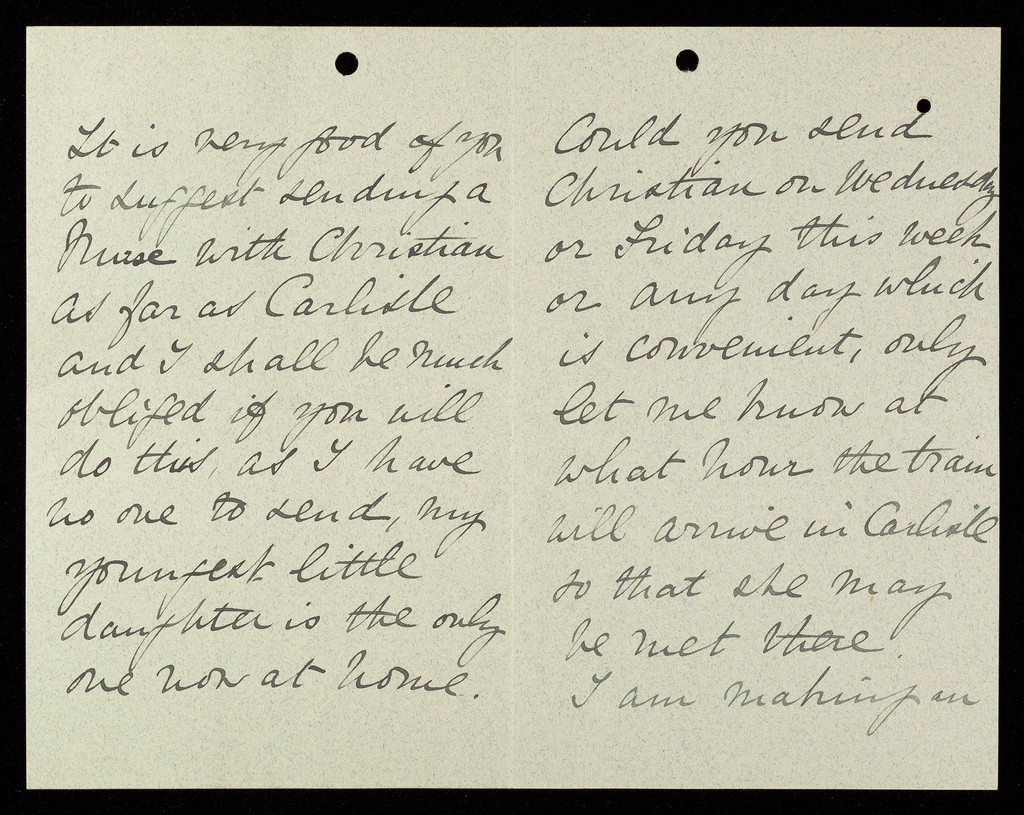 It is very good of you
to suggest sending a
Nurse with Christian
as far as Carlisle
and I shall be much
obliged if you will
do this, as I have
no one to send, my
youngest little
daughter is the only
one now at home.
Could you send
Christian on Wednesday
or Friday this week
or any day which
is convenient, only
let me know at
what hour the train
will arrive in Carlisle
so that she may
be met there.
I am making an